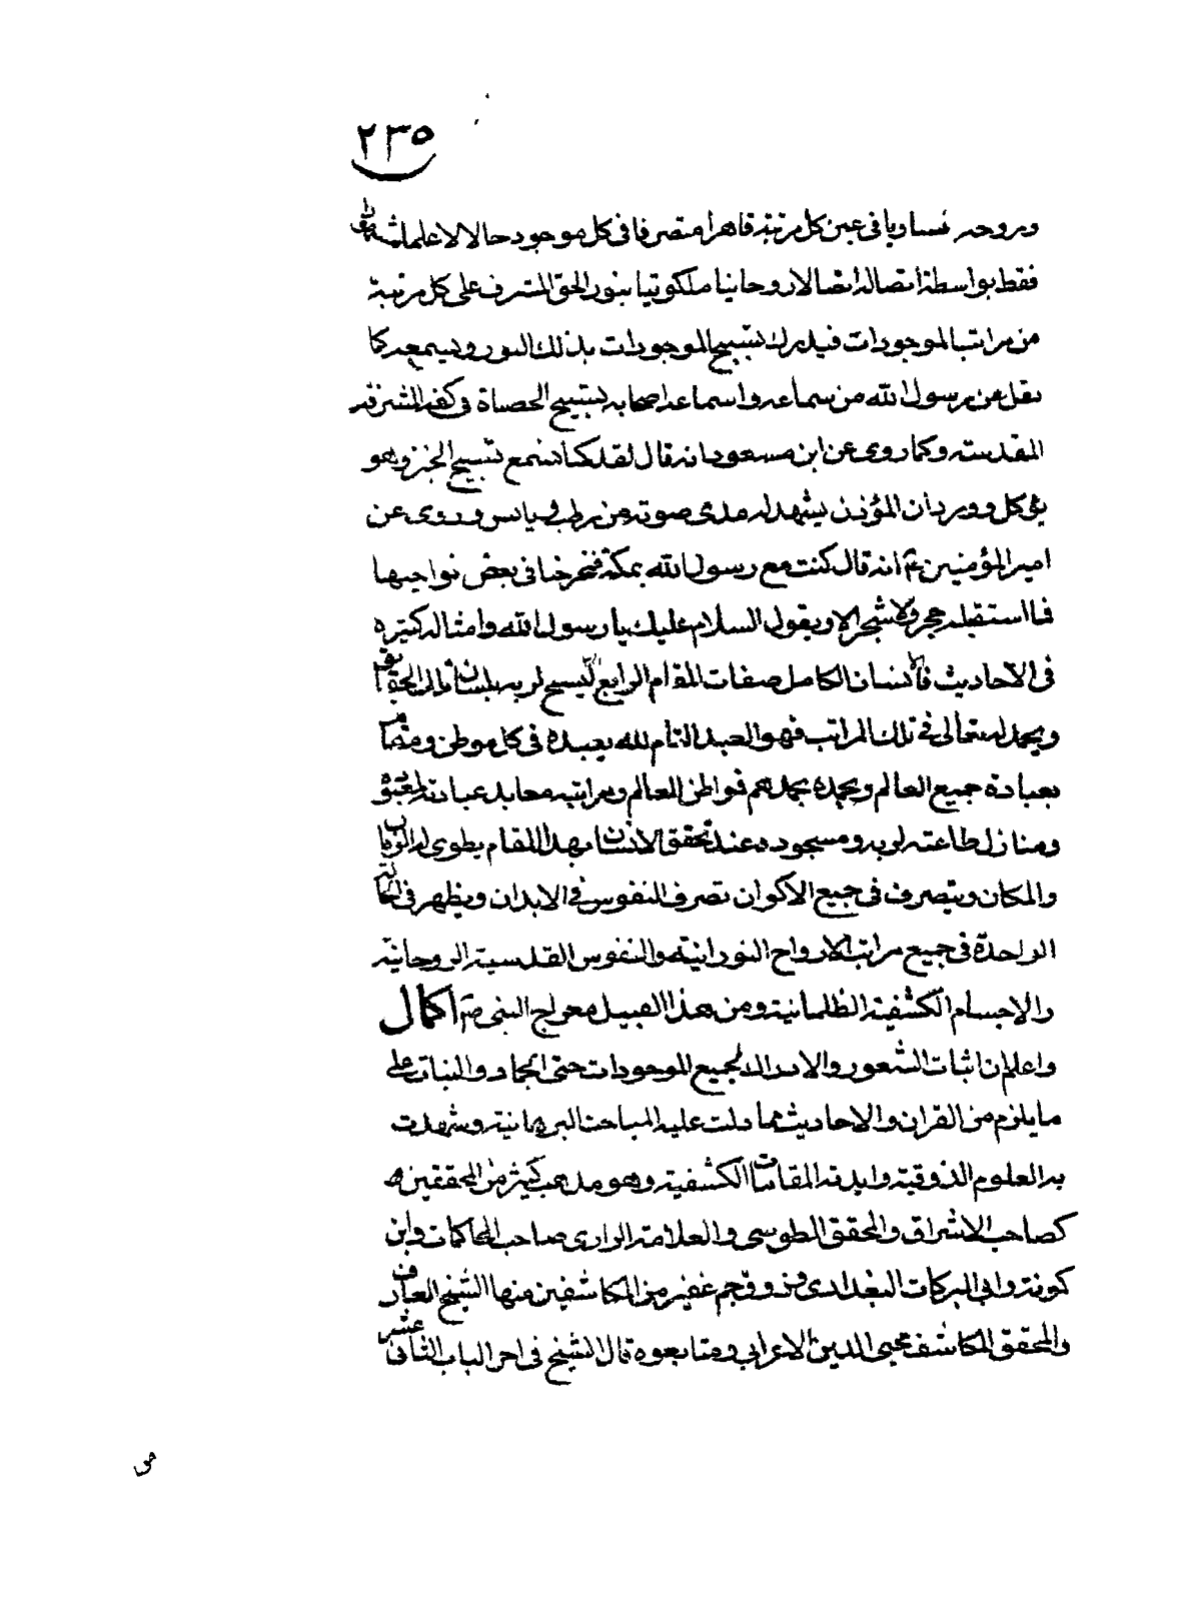 ٢٣٥
وبروحه مساويا في عين كل مرتبة قاهرا متصرفا في كل موجود حالا لا علما
فقط بواسطة اتصاله اتصالا روحانيا ملكوتيا بنور الحق المشرف على كل مرتبة
من مراتب الموجودات فيدرك تسبيح الموجودات بذلك النور ويسمعه كما
نقل عن رسول الله من سماعه واسماعه اصحابه تسبيح الحصاة في كفه المشرفة
المقدسة وكما روى عن ابن مسعود انه قال لقد كنا نسمع تسبيح الخبز وهو
يؤكل وورد ان المؤذن يشهد له مدى صوته من رطب ويابس وروى عن
امير المؤمنين ع انه قال كنت مع رسول الله بمكة فخرجنا في بعض نواحيها
فما استقبله حجر ولا شجر الا ويقول السلام عليك يا رسول الله وامثاله كثيره
في الاحاديث فالانسان الكامل صفات المقام الرابع يسبح لربه بلسان
ويحمده تعالى في تلك المراتب فهو العبد التام لله يعبده في كل موطن ومقام
بعبادة جميع العالم ويحمده بحمدهم فواطن العالم ومراتبه معابد عبادته
ومنازل طاعته لربه ومسجوده عند تحقق الانسان بهذا المقام يطوى له الزمان
والمكان ويتصرف في جميع الاكوان تصرف النفوس في الابدان ويظهر في الحالة
الواحدة في جميع مراتب الارواح النورانية والنفوس القدسية الروحانية
والاجسام الكشفية الظلمانية ومن هذا القبيل معراج النبي ص اكمال
واعلم ان اثبات الشعور والادراك لجميع الموجودات حتى الجماد والنبات على
ما يلزم من القران والاحاديث مما دلت عليه المباحث البرهانية وشهدت
به العلوم الذوقية وايدته المقامات الكشفية وهو مذهب كثير من المحققين
كصاحب الاشراق والمحقق الطوسى والعلامة الرازى صاحب المحاكمات وابن
كمونة وابي البركات البغدادى وجم غفير من المكاشفين منها الشيخ العارف
والمحقق المكاشف محيى الدين الاعرابي ومتابعوه قال الشيخ في اخر الباب الثانى عشر